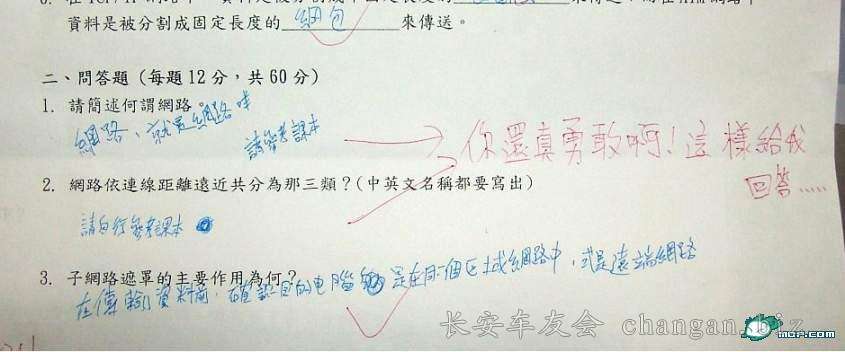 資料是被分割成固定長度的 網包 來傳送。
二、問答題（每題12分，共60分）
1. 請簡述何謂網路。
網路、就是網路哇
請參考課本
你還真勇敢啊！這樣給我
回答.....
2. 網路依連線距離遠近共分為那三類？(中英文名稱都要寫出)
請自行參考課本
3. 子網路遮罩的主要作用為何？
在傳輸資料前，確認目的电腦 是在同個区域網路中，或是遠端網路
长安车友会 changan.biz
mop.com